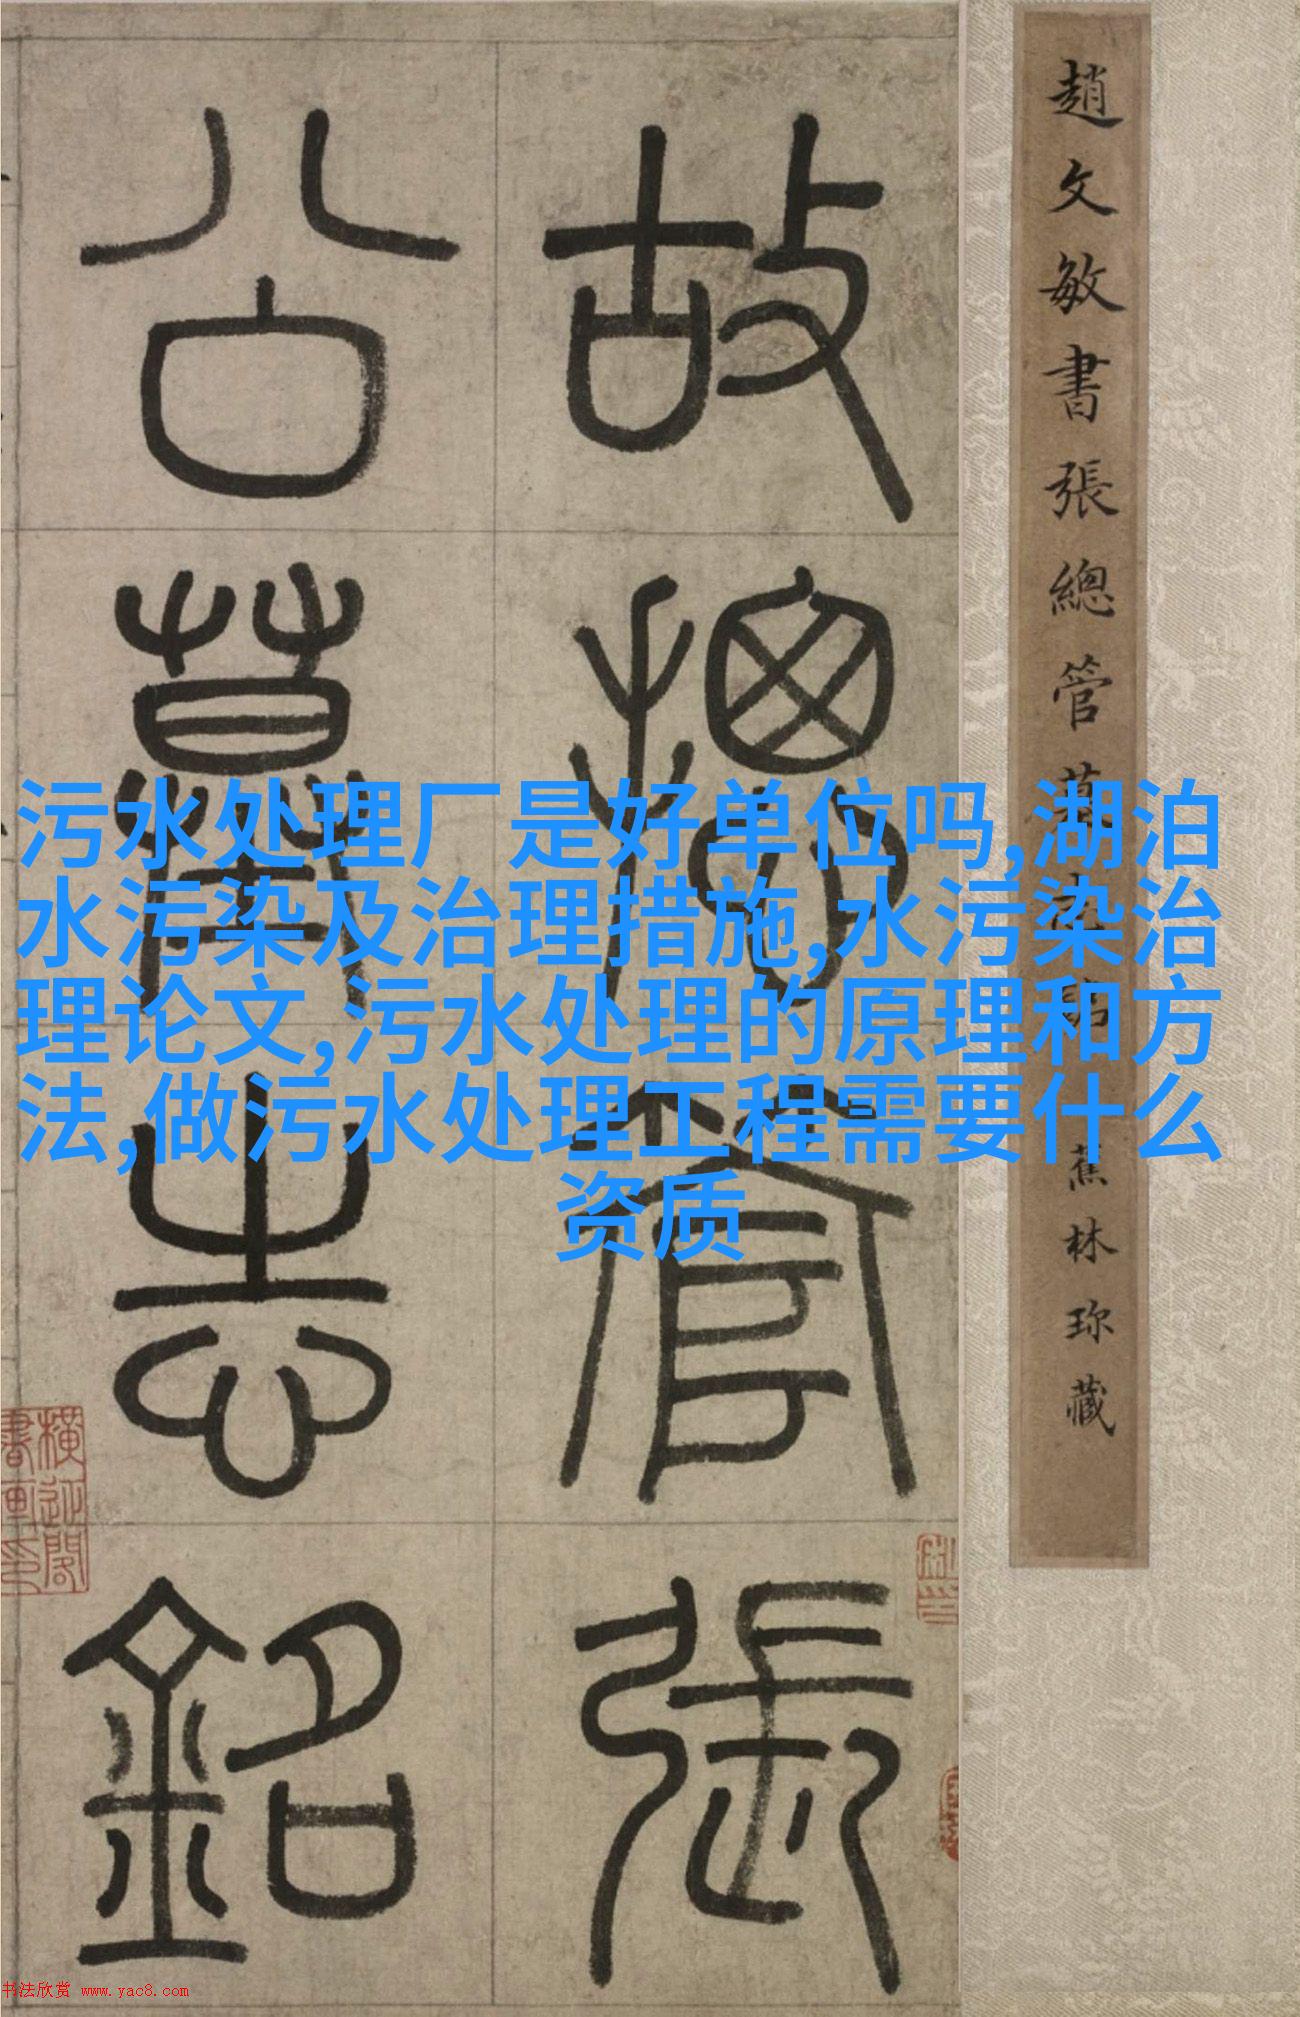 趙文敏書張總管墓志銘
蕉林珎藏
故總管張
公墓志銘
污水处理厂是好单位吗,湖泊
水污染及治理措施,水污染治
理论文,污水处理的原理和方
法,做污水处理工程需要什么
资质
书法欣赏 www.yac8.com